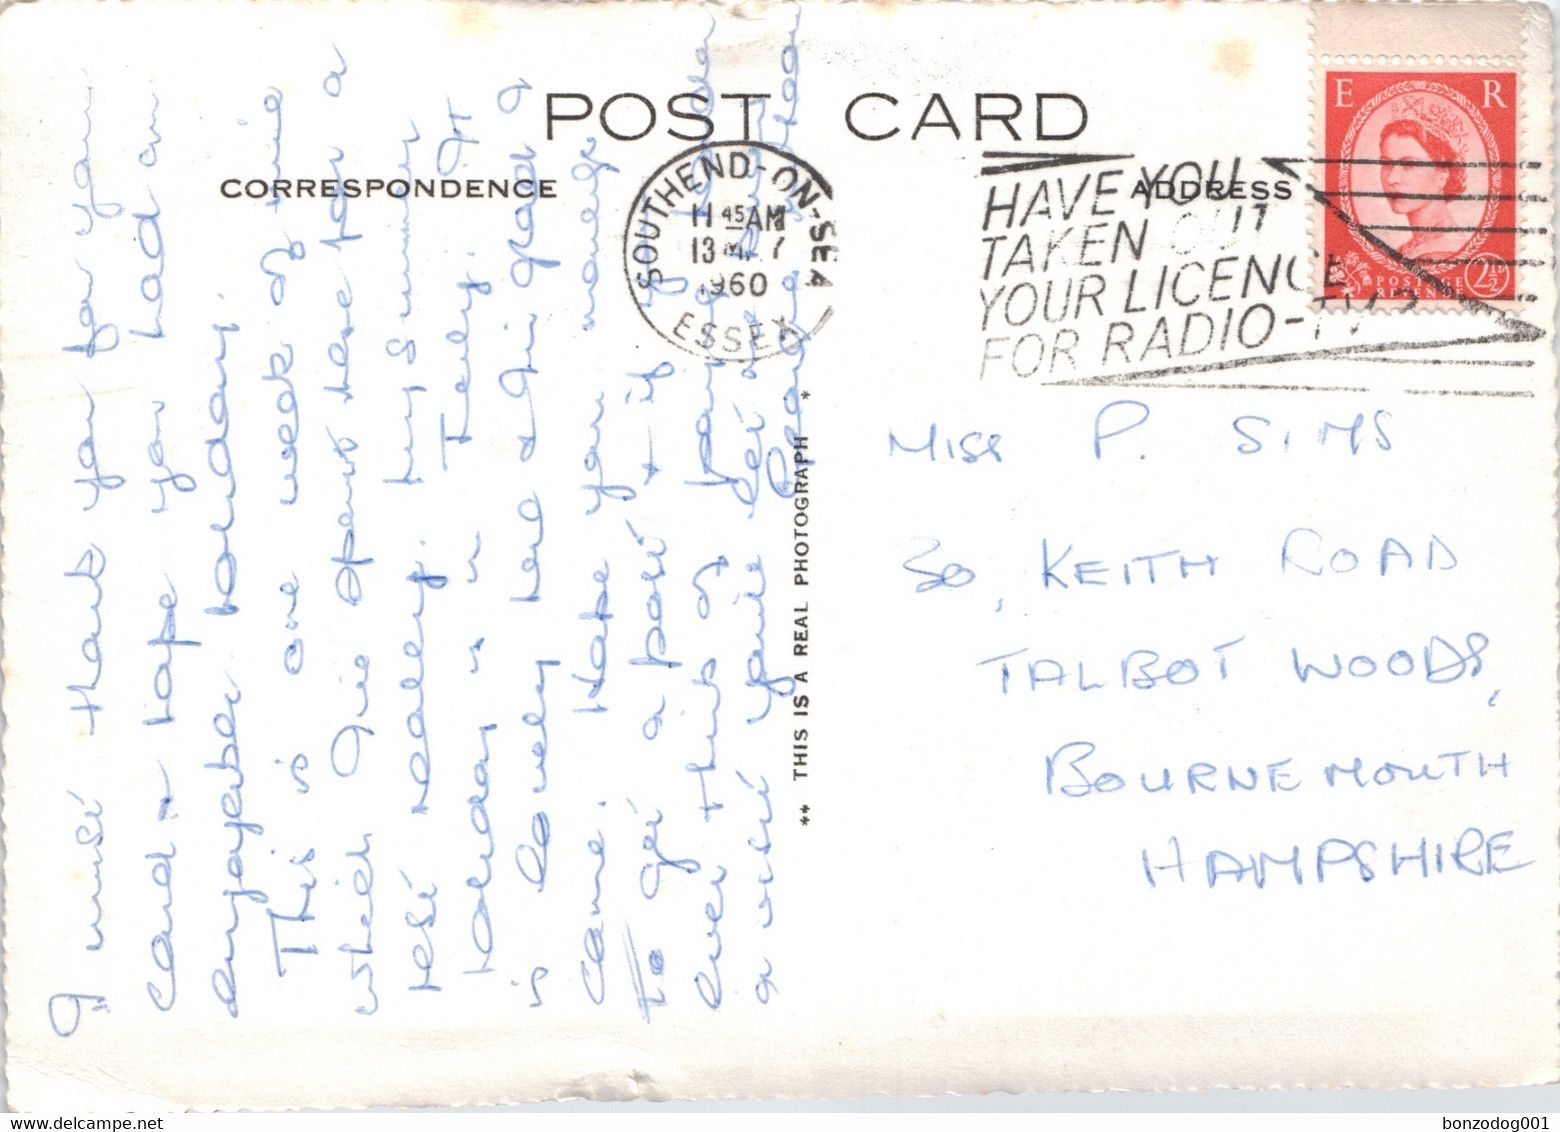 POST CARD
CORRESPONDENCE
ADDRESS
SOUTHEND-ON-SEA
11 45 AM
13
1960
ESSEX
HAVE YOU
TAKEN OUT
YOUR LICENCE
FOR RADIO-TV?
E R
POSTAGE
REVENUE
2½D
I must thank you for your
card & hope you had an
enjoyable holiday.
This is one week of mine
which I've spent here for a
rest really. My Summer
holiday is in July. It
is lovely here & I'm glad I
came. Hope you manage
to get a post & if you
ever think of
a visit you'll let
** THIS IS A REAL PHOTOGRAPH *
MISS P. SIMS
30, KEITH ROAD
TALBOT WOODS,
BOURNEMOUTH
HAMPSHIRE
bonzodog001